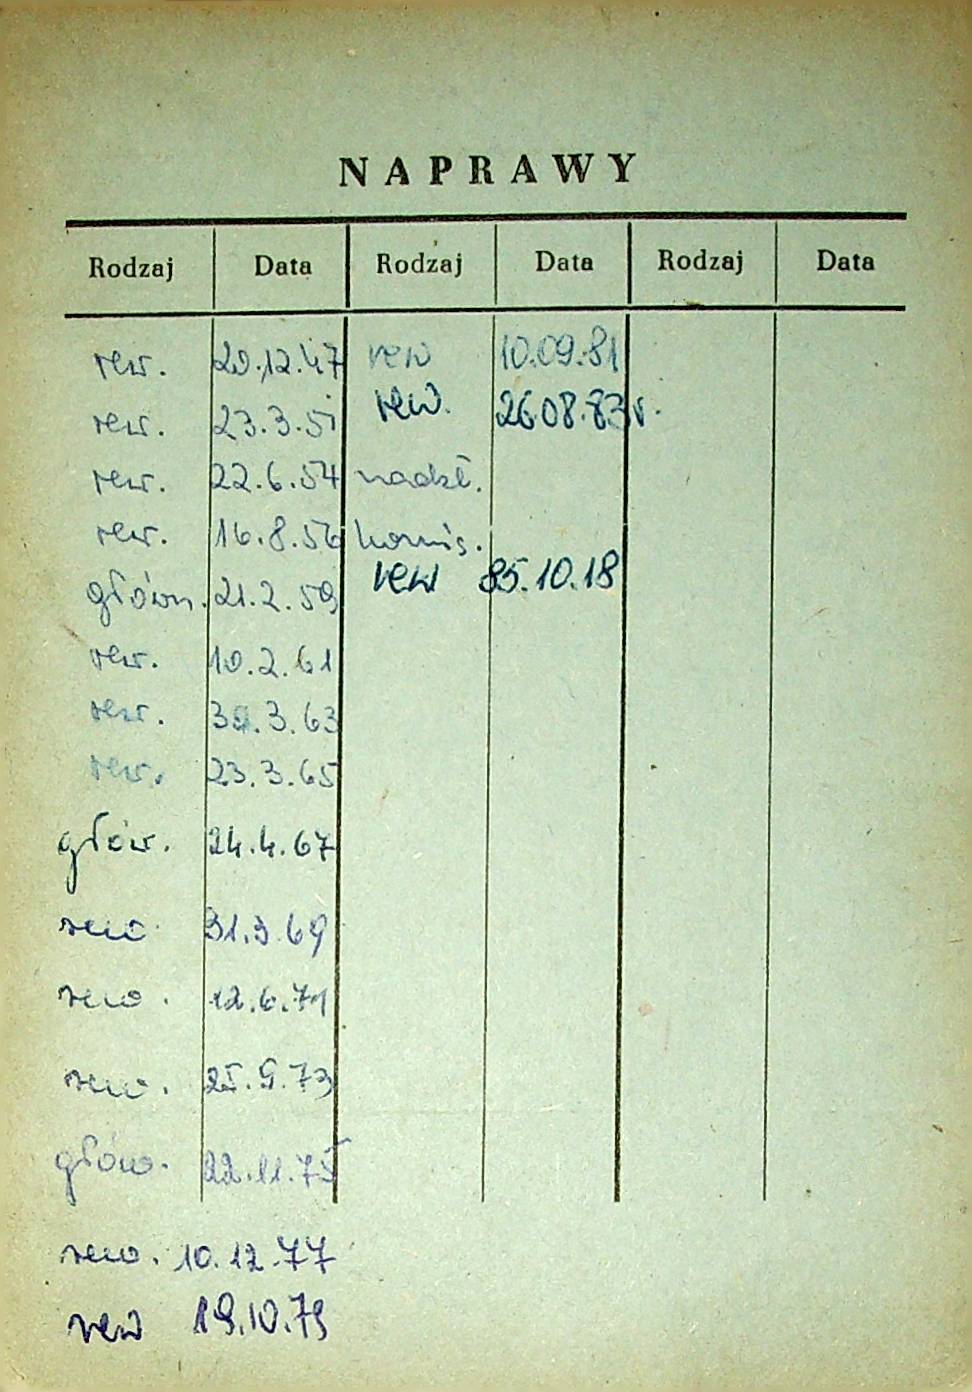 NAPRAWY
Rodzaj Data Rodzaj Data Rodzaj Data
rew. 20.12.47 rew 10.09.81
rew. 23.3.51 rew. 26.08.83r.
rew. 22.6.54 nadzt.
rew. 16.8.56 komis.
główn. 21.2.59 rew 85.10.18
rew. 10.2.61
rew. 3.3.63
rew. 23.3.65
głów. 24.4.67
rew. 31.3.69
rew. 12.6.71
rew. 25.9.73
głów. 22.11.75
rew. 10.12.77
rew 19.10.79